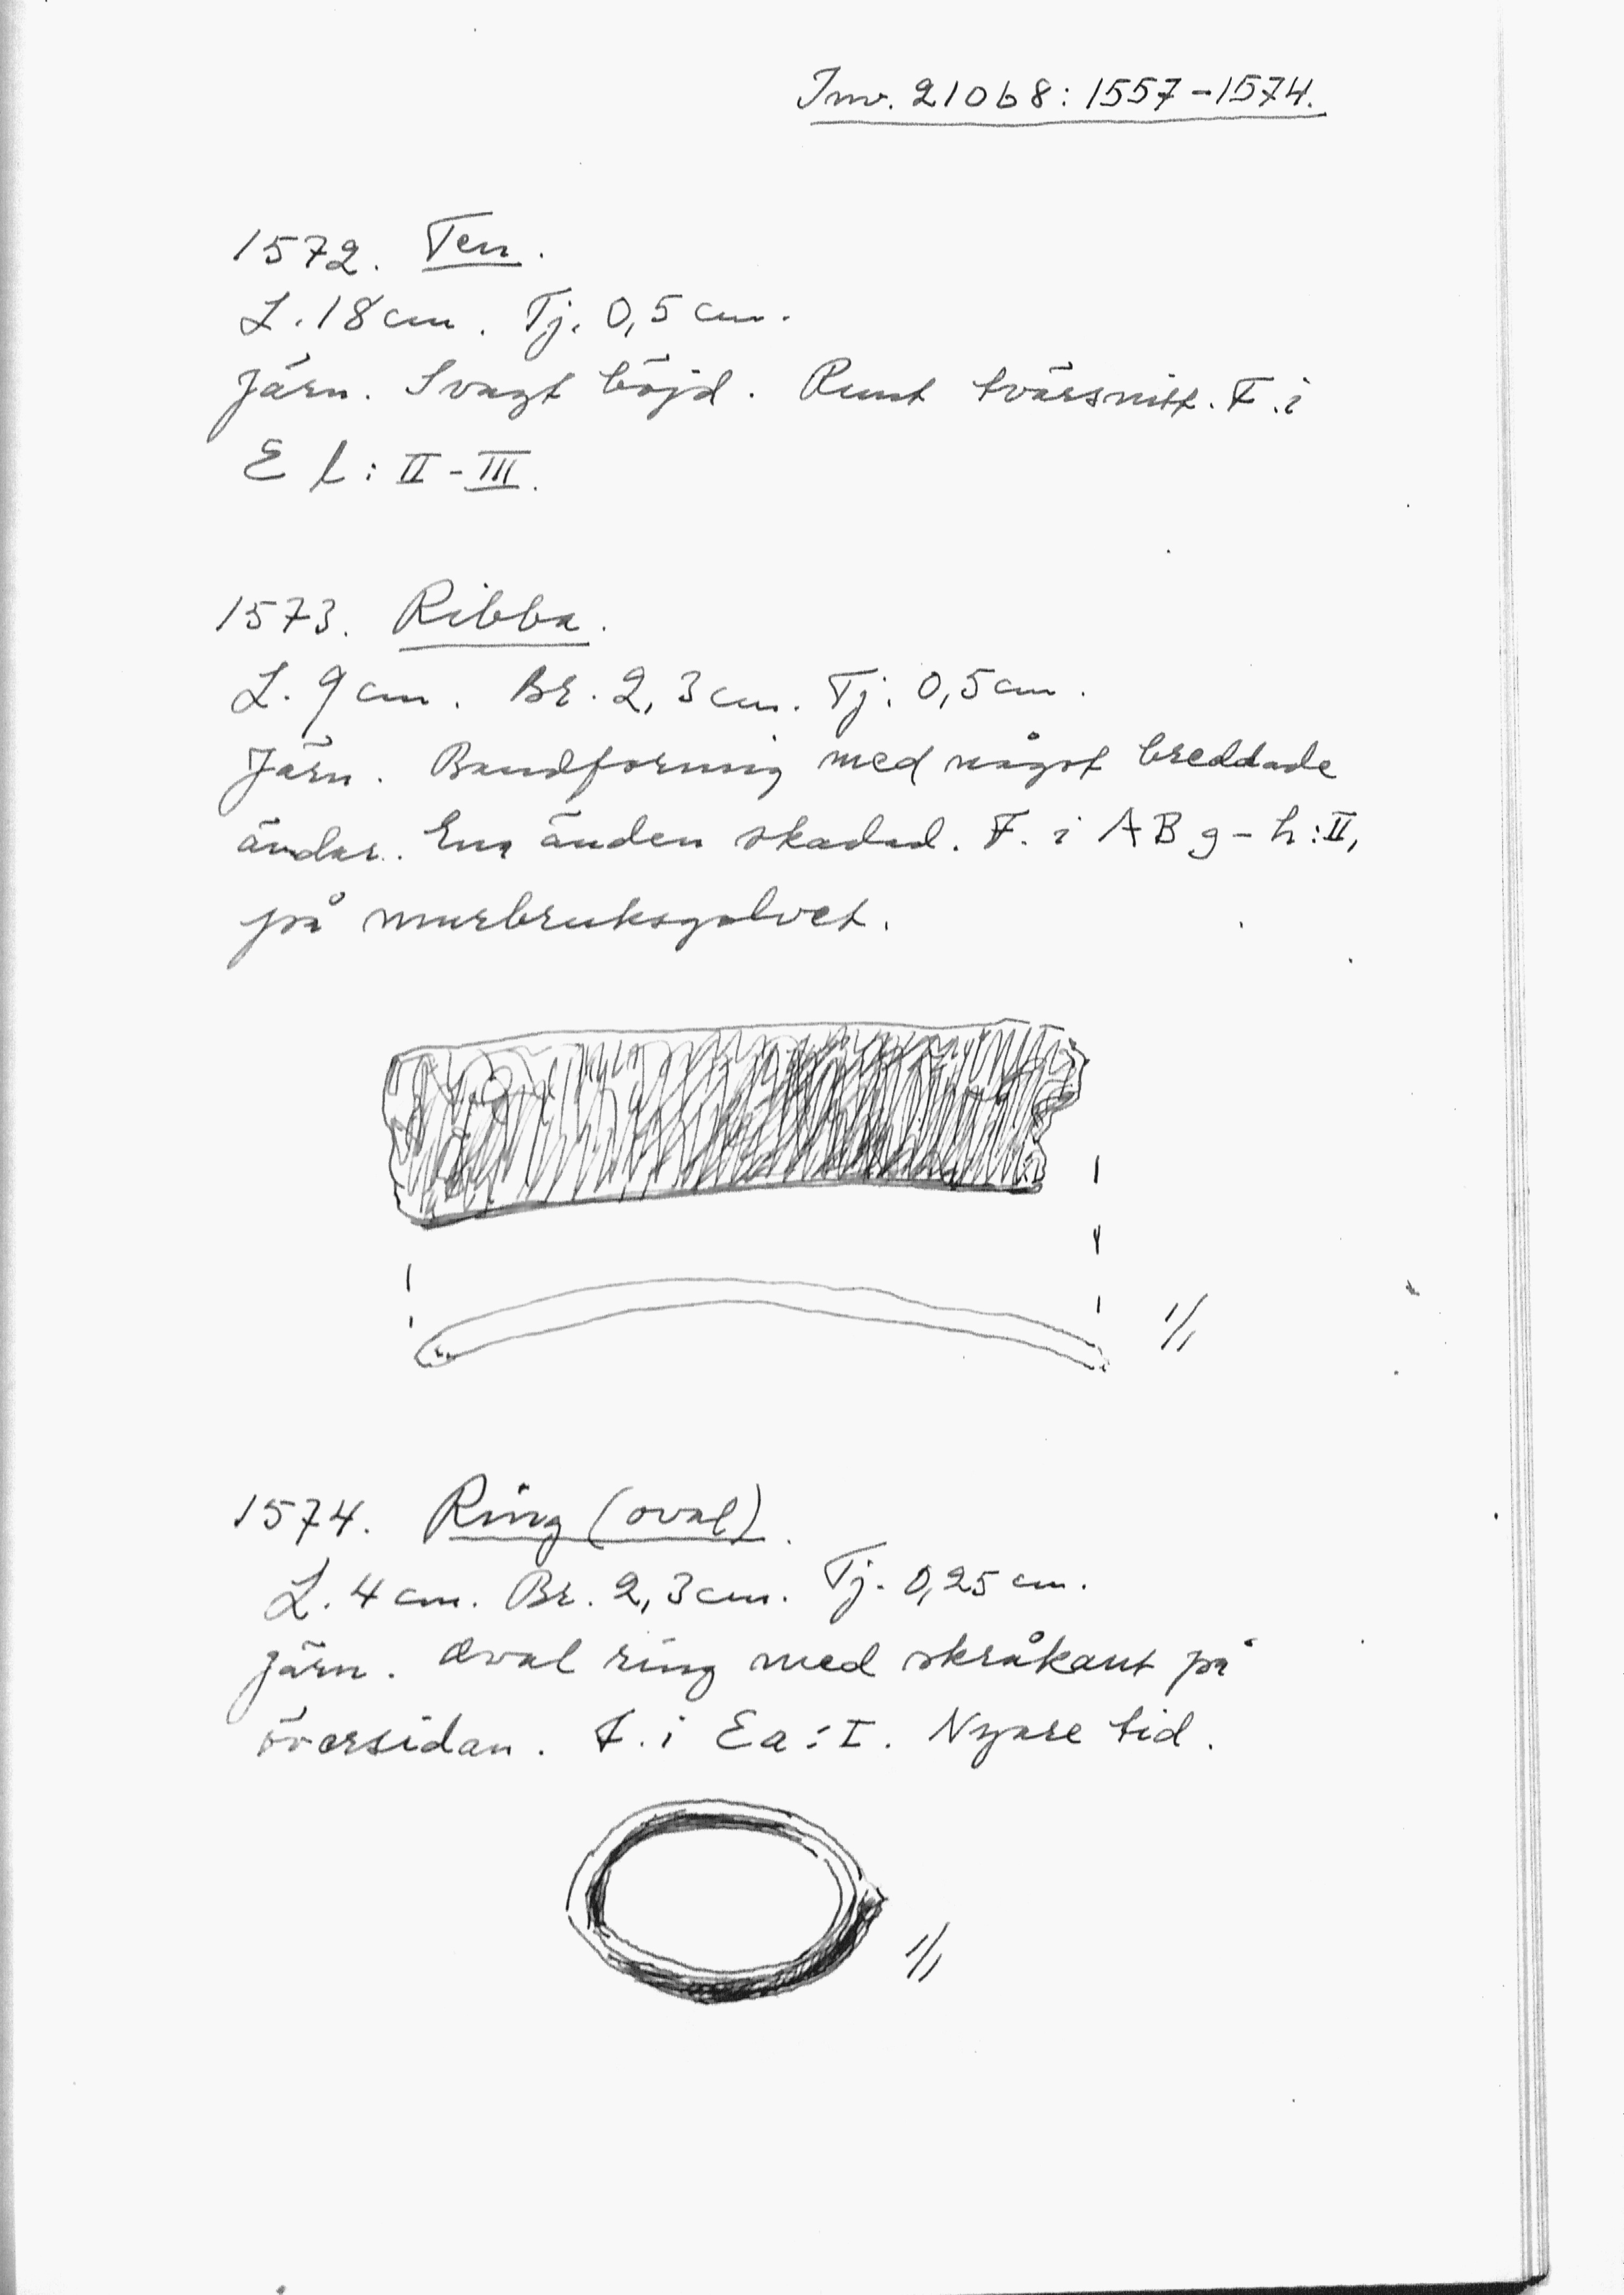 Inv. 21068: 1557-1574.
1572. Ten.
L. 18 cm. Tj. 0,5 cm.
Järn. Svagt böjd. Runt tvärsnitt. F. i
E l: II-III.
1573. Ribba.
L. 9 cm. Br. 2,3 cm. Tj. 0,5 cm.
Järn. Bandformig med något breddade
ändar. Ena änden skadad. F. i AB g-h: II,
på murbruksgolvet.
1/1
1574. Ring (oval).
L. 4 cm. Br. 2,3 cm. Tj. 0,25 cm.
Järn. Oval ring med skråkant på
översidan. F. i Ea: I. Nyare tid.
1/1